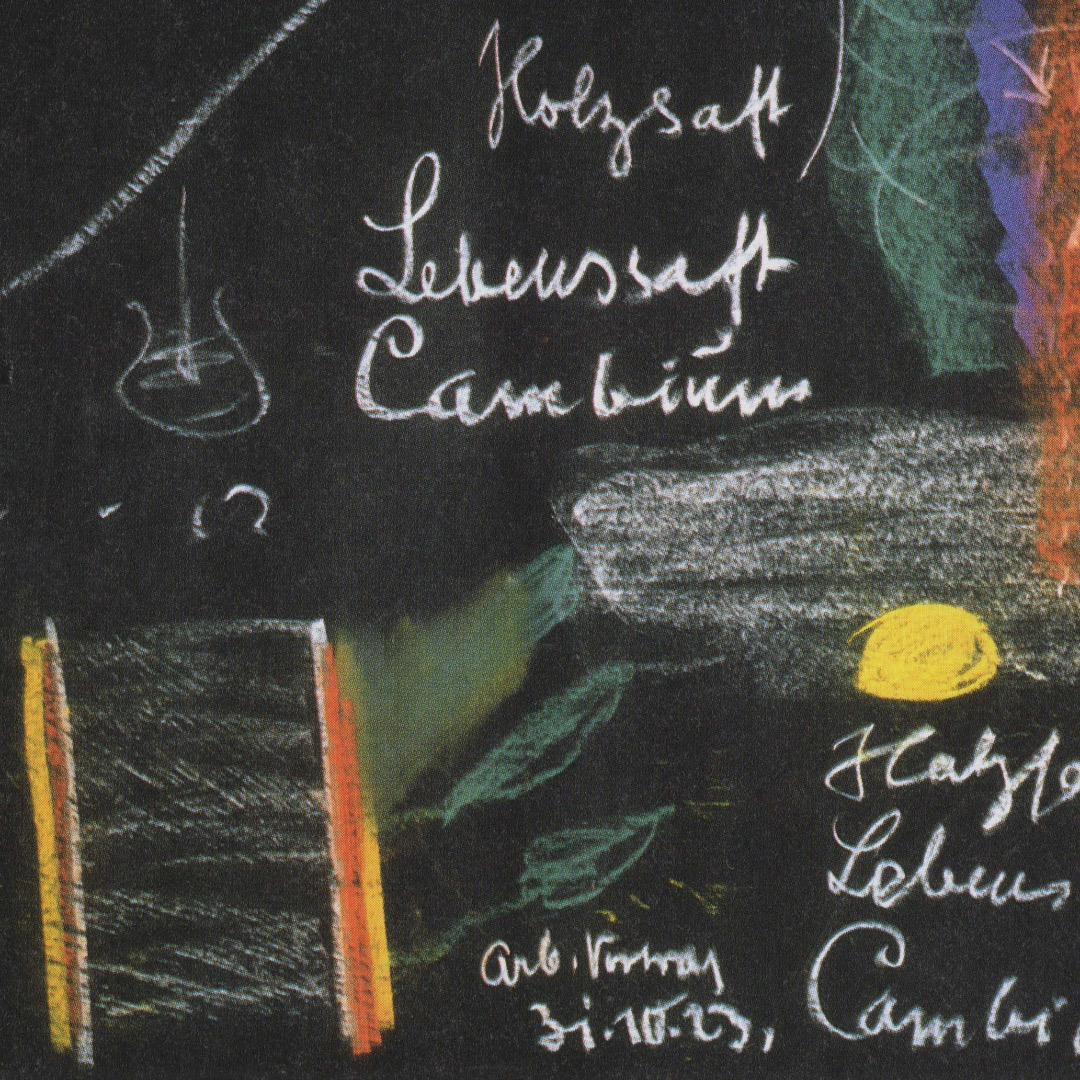 Holzsaft
Lebenssaft
Cambiūm
Lebens
Cambi
Arb. Vortrag
31.10.23,